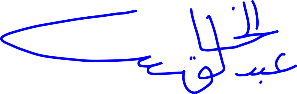 عبد الخالق